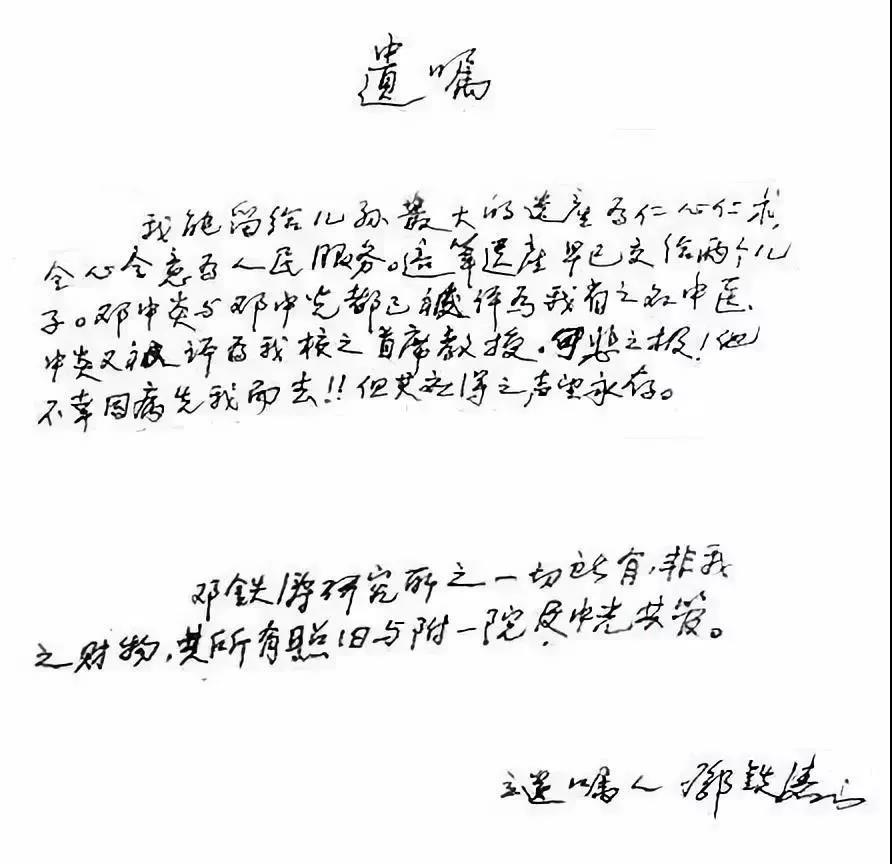 遺嘱
我能留给儿孙最大的遗产为仁心仁术,
全心全意为人民服务。这笔遗产早已交给两个儿
子。邓中炎与邓中光都已被评为我省之名中医.
中炎又被评为我校之首席教授。可悲之极!他
不幸因病先我而去!!但其应得之声望永存。
邓铁涛研究所之一切所有,非我
之财物,其所有照旧与附一院及中光共管。
立遗嘱人 邓铁涛